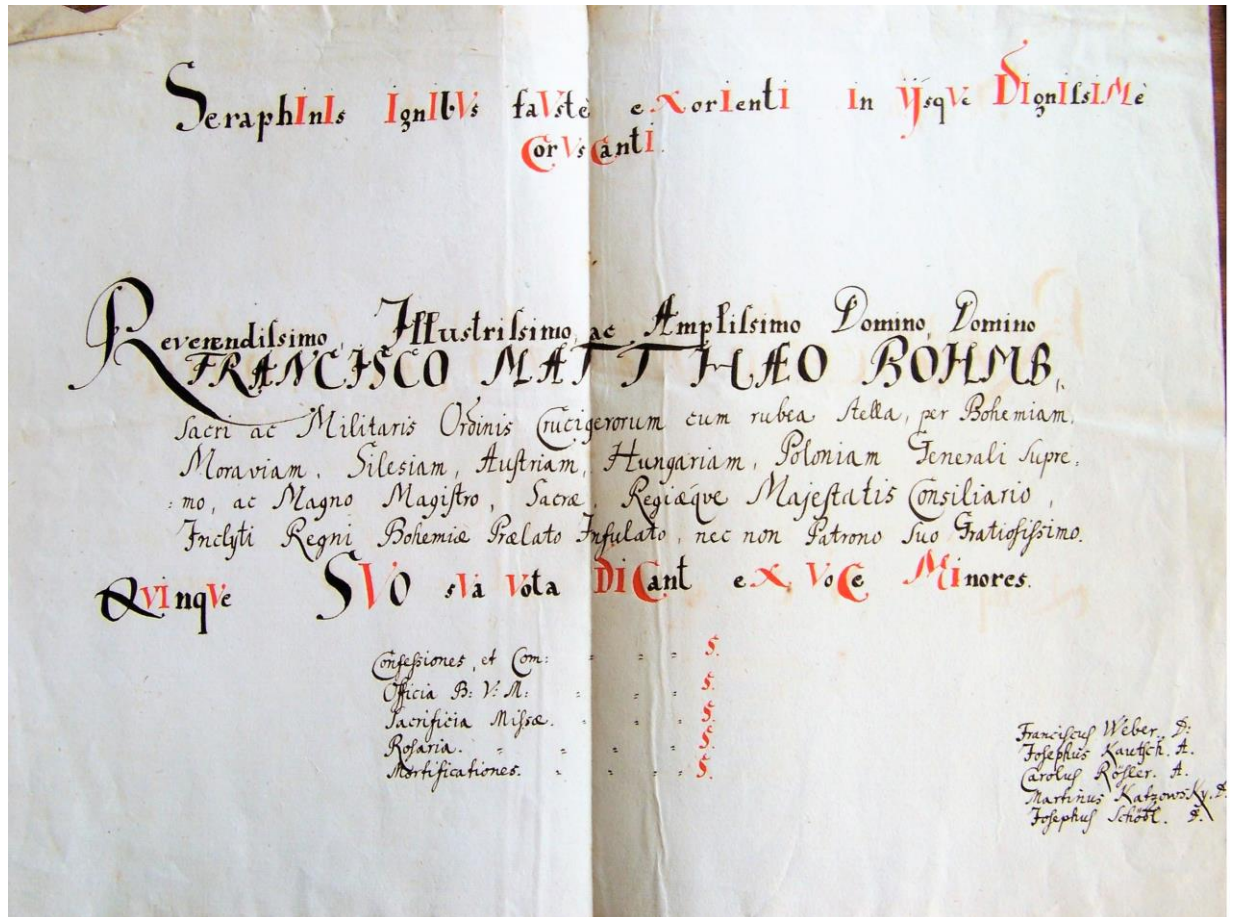 SeraphInIs IgnIbVs faVstè eXorIentI In IJsqVe DIgnIssIMè
CorVsCantI.
Reverendissimo, Illustrissimo, ac Amplissimo Domino, Domino
FRANCISCO MATTHÆO BÖHMB,
Sacri ac Militaris Ordinis Crucigerorum cum rubea stella, per Bohemiam,
Moraviam, Silesiam, Austriam, Hungariam, Poloniam Generali supre=
=mo, ac Magno Magistro, Sacræ, Regiæque Majestatis Consiliario,
Inclyti Regni Bohemiæ Prælato Infulato, nec non Patrono suo Gratiosissimo.
QVInqVe SVO sVa Vota DICant eX VoCe MInores.
Confessiones, et Com: = = = 5.
Officia B: V: M: = = = = 5.
Sacrificia Missæ. = = = 5.
Rosaria. = = = = 5.
Mortificationes. = = = = 5.
Franciscus Weber. D:
Josephus Kautsch. A.
Carolus Rösler. A.
Martinus Katzowsky. D.
Josephus Schöbl. D.